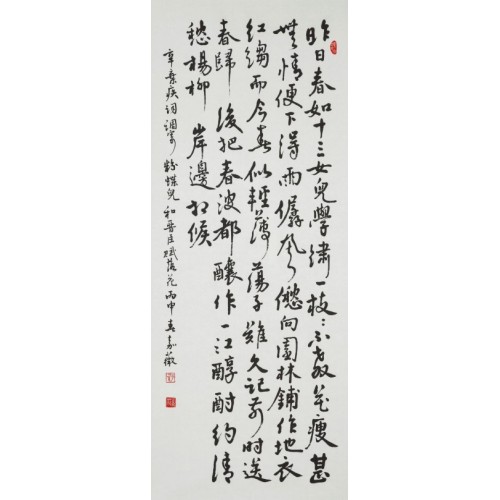 昨日春如十三女兒學繡一枝枝不教花瘦甚
無情便下得雨僝風僽向園林鋪作地衣
紅縐而今春似輕薄蕩子難久記前時送
春歸後把春波都釀作一江醇酎約清
愁楊柳岸邊相候
辛棄疾詞調寄粉蝶兒和晉臣賦落花丙申春嘉